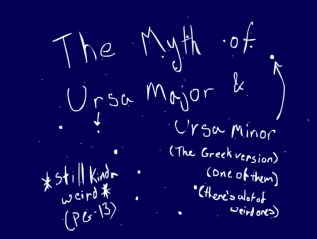 The Myth of
Ursa Major &
Ursa Minor
(The Greek version)
(one of them)
*(there's alot of
weird ones)
*still kinda
weird*
(PG-13)